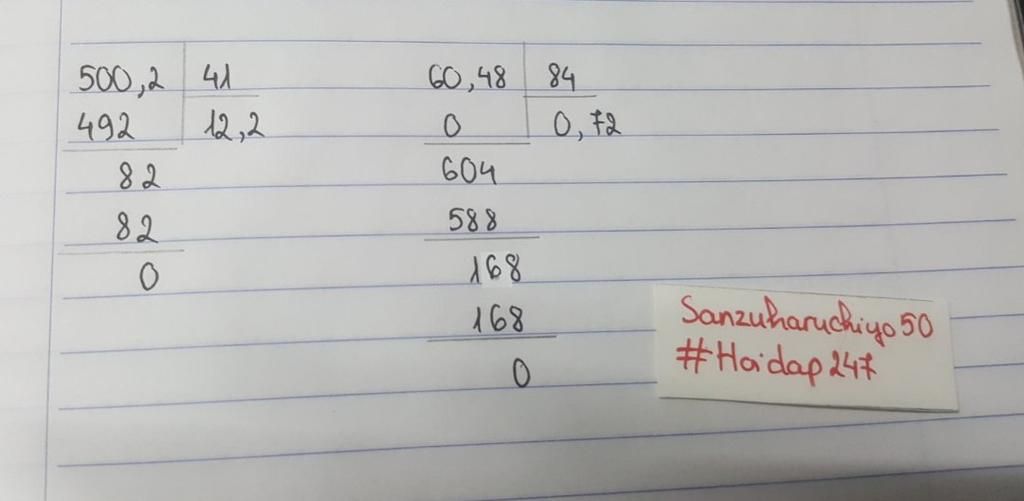 500,2 41
492 12,2
82
82
0
60,48 84
0 0,72
604
588
168
168
0
Sanzuharuchiyo50
#Hoidap247